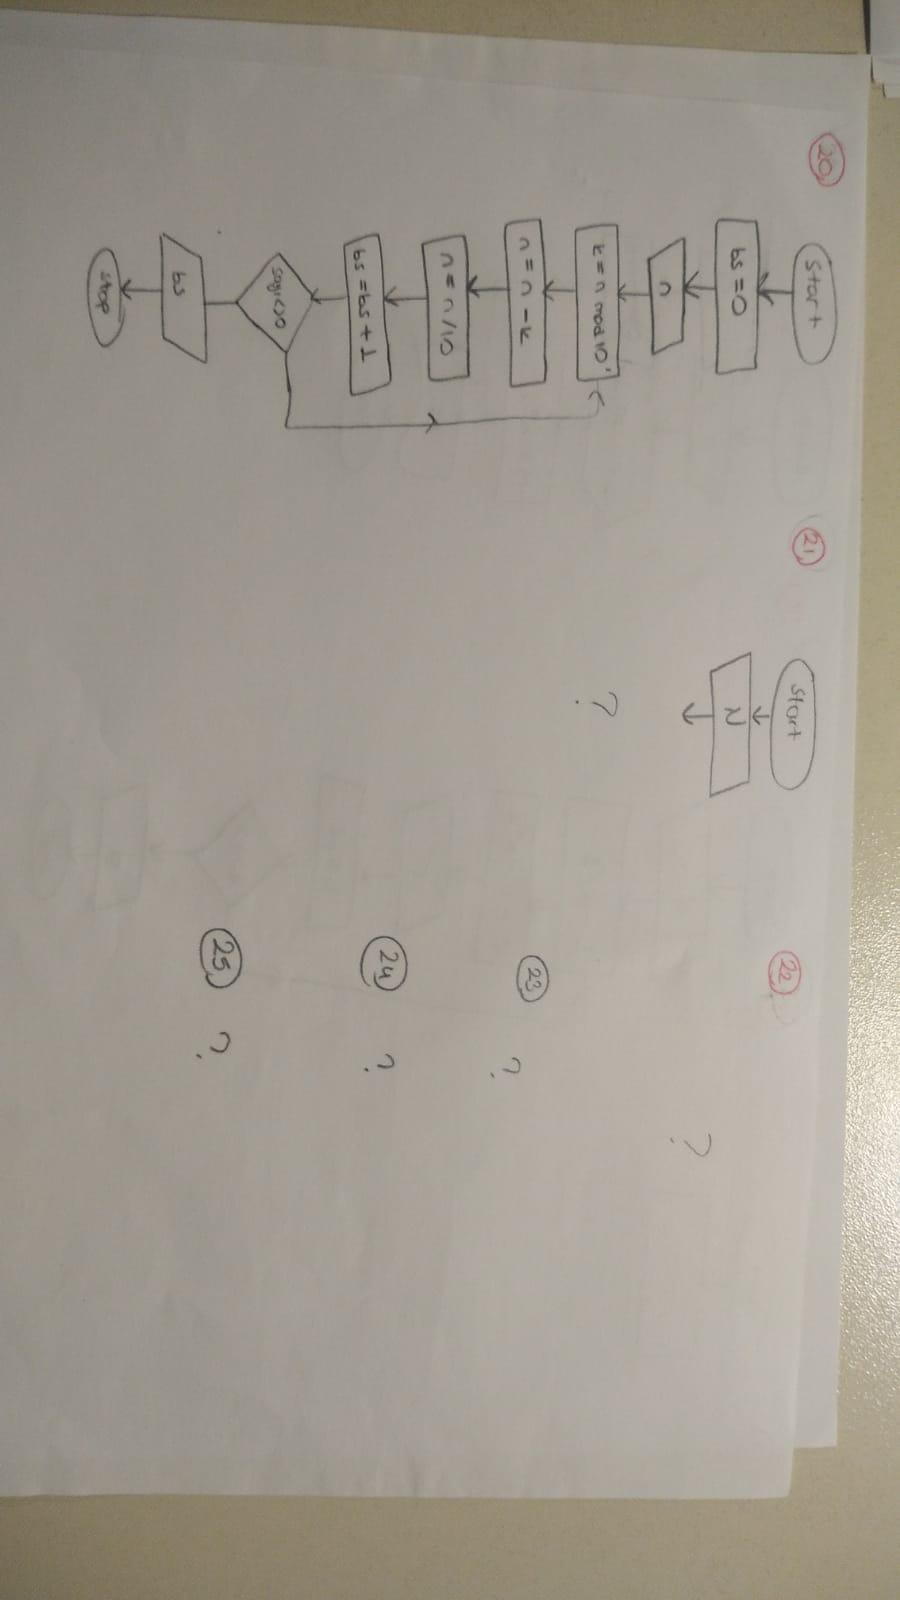 20)
Start
bs=0
n
k=n mod 10'
n=n-k
n=n/10
bs=bs+1
sayı<>0
bs
stop
21)
Start
N
?
22)
?
23)
?
24)
?
25)
?